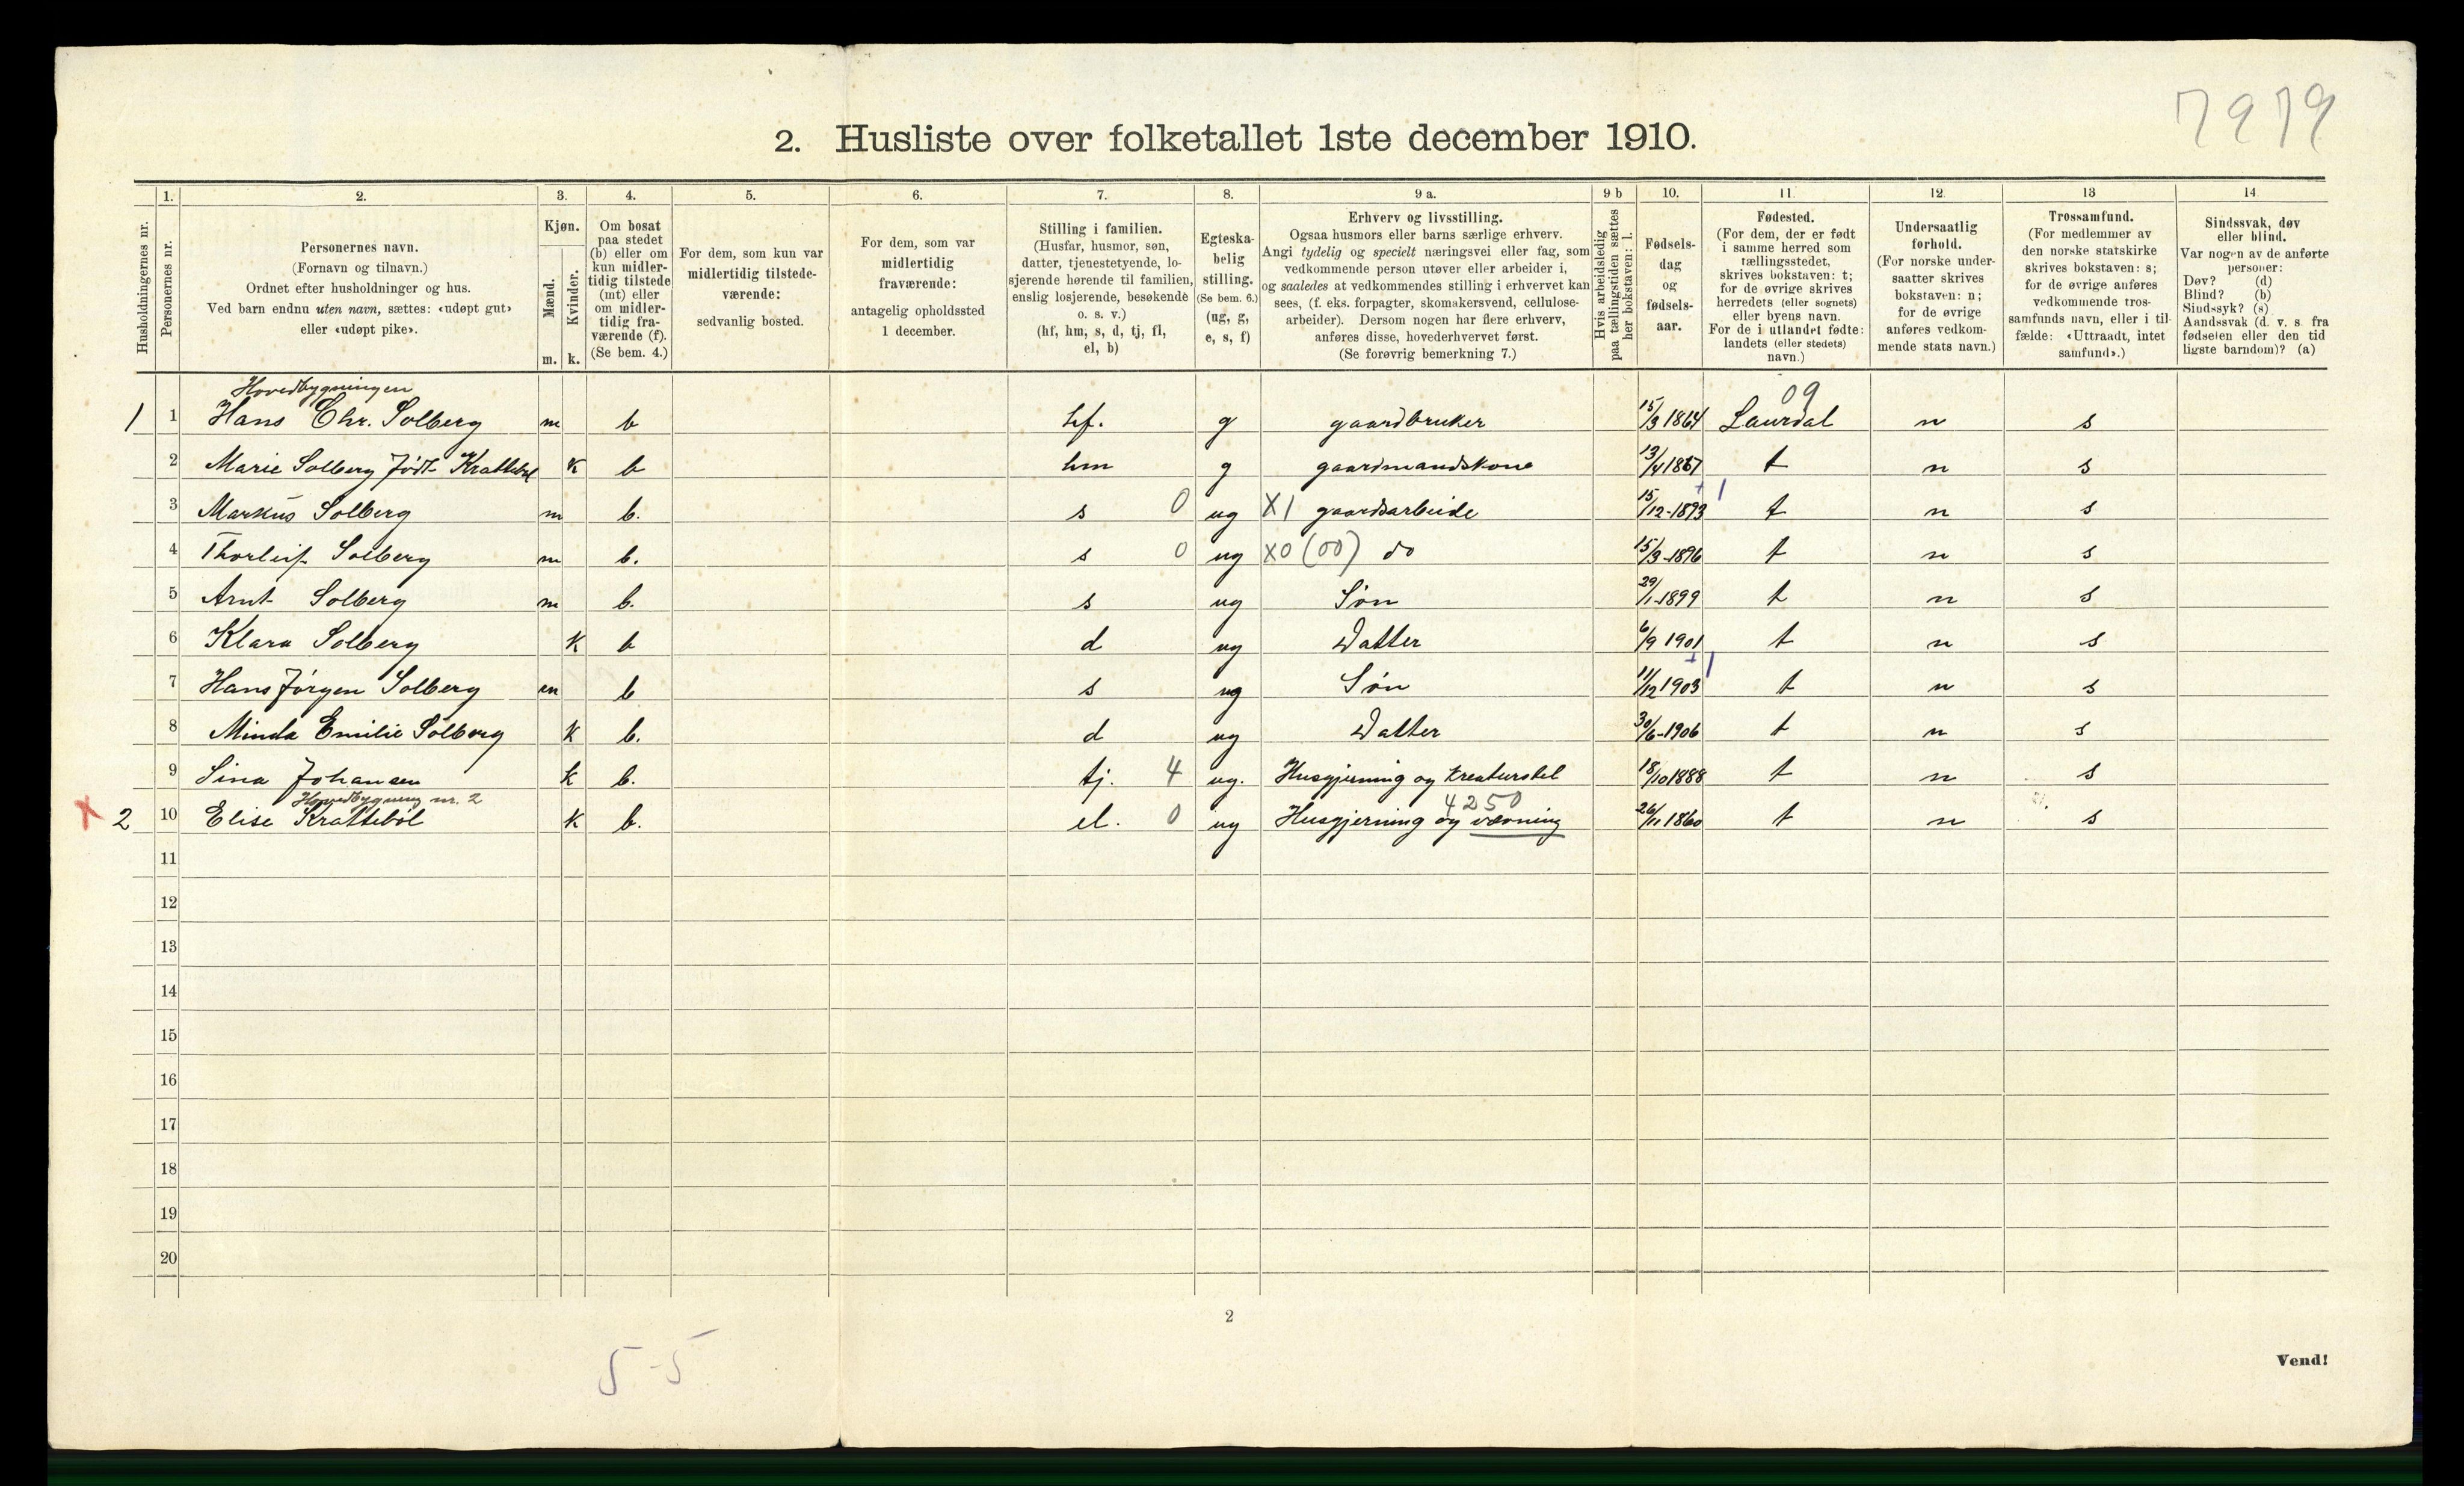 7979
2. Husliste over folketallet 1ste december 1910.
Husholdningernes nr.
1.
Personernes nr.
2.
Personernes navn.
(Fornavn og tilnavn.)
Ordnet efter husholdninger og hus.
Ved barn endnu uten navn, sættes: «udøpt gut»
eller «udøpt pike».
3.
Kjøn.
Mænd.
Kvinder.
m. k.
4.
Om bosat
paa stedet
(b) eller om
kun midler-
tidig tilstede
(mt) eller
om midler-
tidig fra-
værende (f).
(Se bem. 4.)
5.
For dem, som kun var
midlertidig tilstede-
værende:
sedvanlig bosted.
6.
For dem, som var
midlertidig
fraværende:
antagelig opholdssted
1 december.
7.
Stilling i familien.
(Husfar, husmor, søn,
datter, tjenestetyende, lo-
sjerende hørende til familien,
enslig losjerende, besøkende
o. s. v.)
(hf, hm, s, d, tj, fl,
el, b)
8.
Egteska-
belig
stilling.
(Se bem. 6.)
(ug, g,
e, s, f)
9 a.
Erhverv og livsstilling.
Ogsaa husmors eller barns særlige erhverv.
Angi tydelig og specielt næringsvei eller fag, som
vedkommende person utøver eller arbeider i,
og saaledes at vedkommendes stilling i erhvervet kan
sees, (f. eks. forpagter, skomakersvend, cellulose-
arbeider). Dersom nogen har flere erhverv,
anføres disse, hovederhvervet først.
(Se forøvrig bemerkning 7.)
9 b
Hvis arbeidsledig
paa tællingstiden sættes
her bokstaven: l.
10.
Fødsels-
dag
og
fødsels-
aar.
11.
Fødested.
(For dem, der er født
i samme herred som
tællingsstedet,
skrives bokstaven: t;
for de øvrige skrives
herredets (eller sognets)
eller byens navn.
For de i utlandet fødte:
landets (eller stedets)
navn.)
12.
Undersaatlig
forhold.
(For norske under-
saatter skrives
bokstaven: n;
for de øvrige
anføres vedkom-
mende stats navn.)
13
Trossamfund.
(For medlemmer av
den norske statskirke
skrives bokstaven: s;
for de øvrige anføres
vedkommende tros-
samfunds navn, eller i til-
fælde: «Uttraadt, intet
samfund».)
14
Sindssvak, døv
eller blind.
Var nogen av de anførte
personer:
Døv? (d)
Blind? (b)
Sindssyk? (s)
Aandssvak (d. v. s. fra
fødselen eller den tid-
ligste barndom)? (a)
Hovedbygningen 09
1 1 Hans Chr. Solberg m b hf. g gaardbruker 15/3 1864 Laurdal n s
2 Marie Solberg født Krattebøl k b hm g gaardmandskone 13/4 1867 t n s
3 Markus Solberg m b. s 0 ug X1 gaardsarbeide 15/12-1893 t n s
4 Thorleif Solberg m b. s 0 ug X0 (00) do 15/3-1896 t n s
5 Arnt Solberg m b. s ug Søn 29/1-1899 t n s
6 Klara Solberg k b d ug Datter 6/9 1901 t n s
7 Hans Jørgen Solberg m b s ug Søn 11/12 1903 t n s
8 Minda Emilie Solberg k b. d ug Datter 30/6-1906 t n s
9 Sina Johansen k b. tj. 4 ug. Husgjerning og kreaturstel 18/10 1888 t n s
Hovedbygning nr. 2 4250
X 2 10 Elise Krattebøl k b. el. 0 ug Husgjerning og vævning 26/11 1860 t n s
11
12
13
14
15
16
17
18
19
20
2
5-5
Vend!